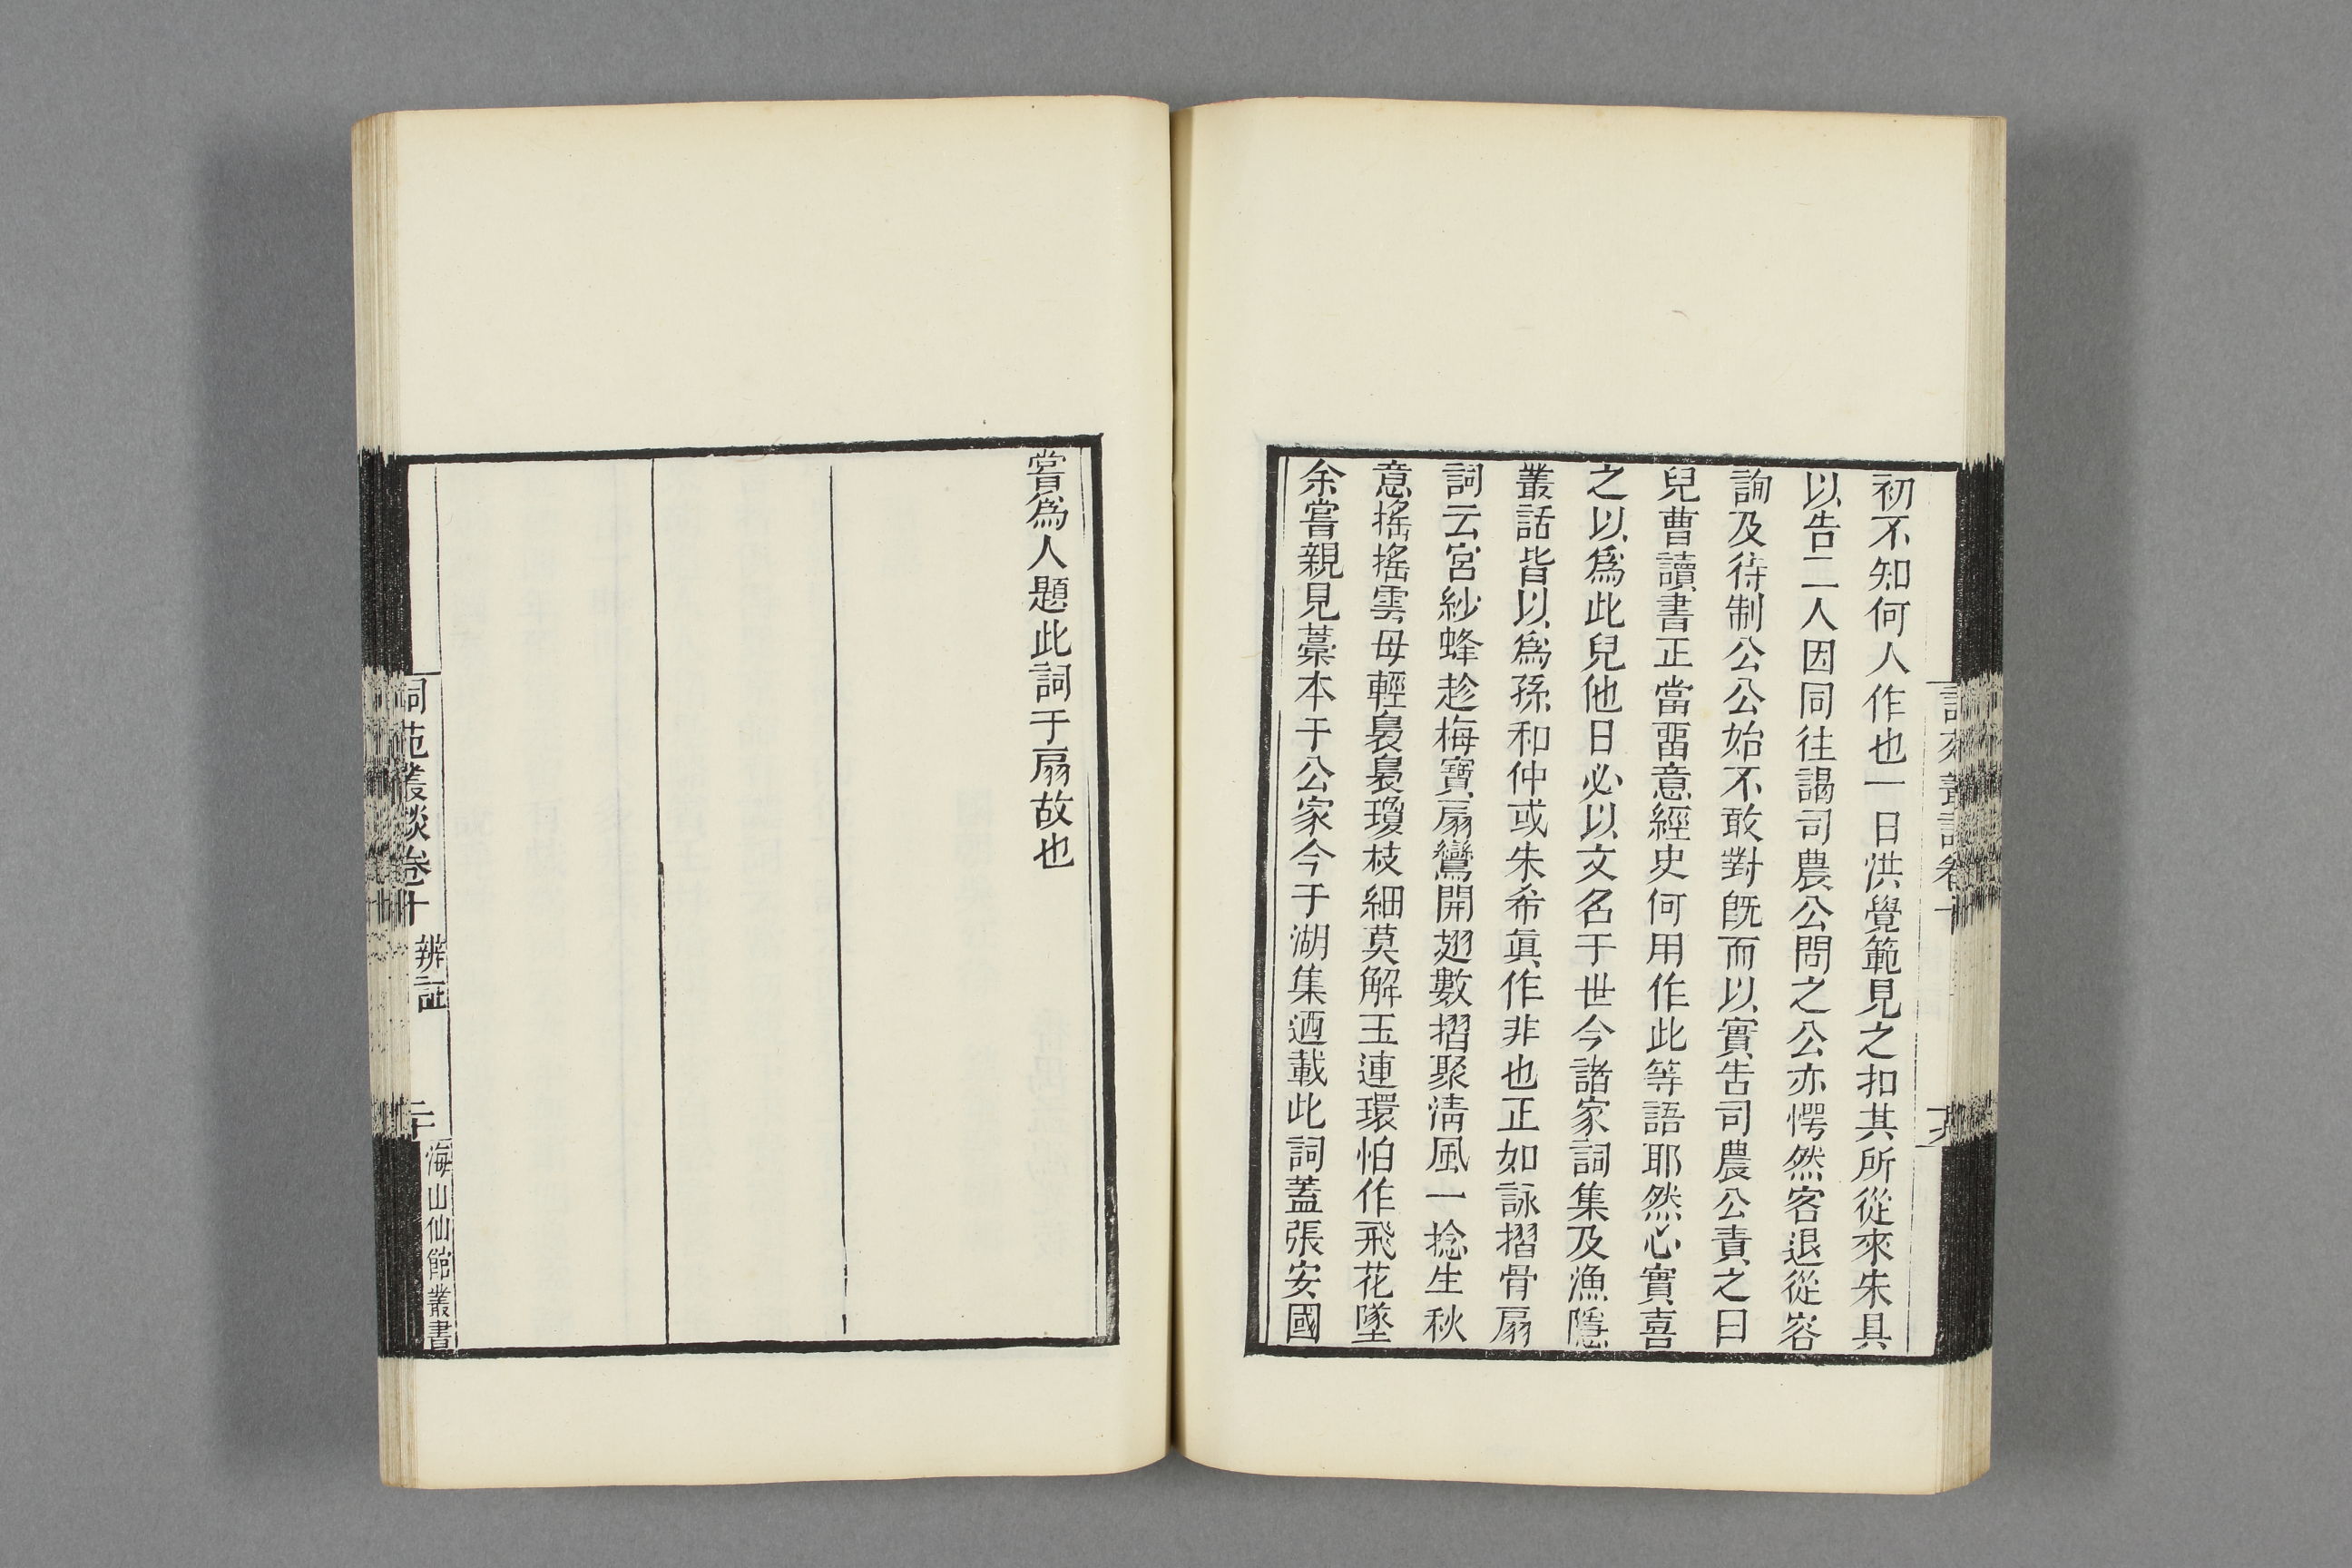 初不知何人作也一日洪覺範見之扣其所從來朱具
以告二人因同往謁司農公問之公亦愕然客退從容
詢及待制公公始不敢對旣而以實告司農公責之曰
兒曹讀書正當畱意經史何用作此等語耶然心實喜
之以爲此兒他日必以文名于世今諸家詞集及漁隱
叢話皆以爲孫和仲或朱希眞作非也正如詠摺骨扇
詞云宮紗蜂趁梅寶扇鸞開翅數摺聚淸風一捻生秋
意搖搖雲母輕裊裊瓊枝細莫解玉連環怕作飛花墜
余嘗親見藳本于公家今于湖集迺載此詞蓋張安國
嘗爲人題此詞于扇故也
詞苑叢談卷十
辨証
二十
海山仙館叢書